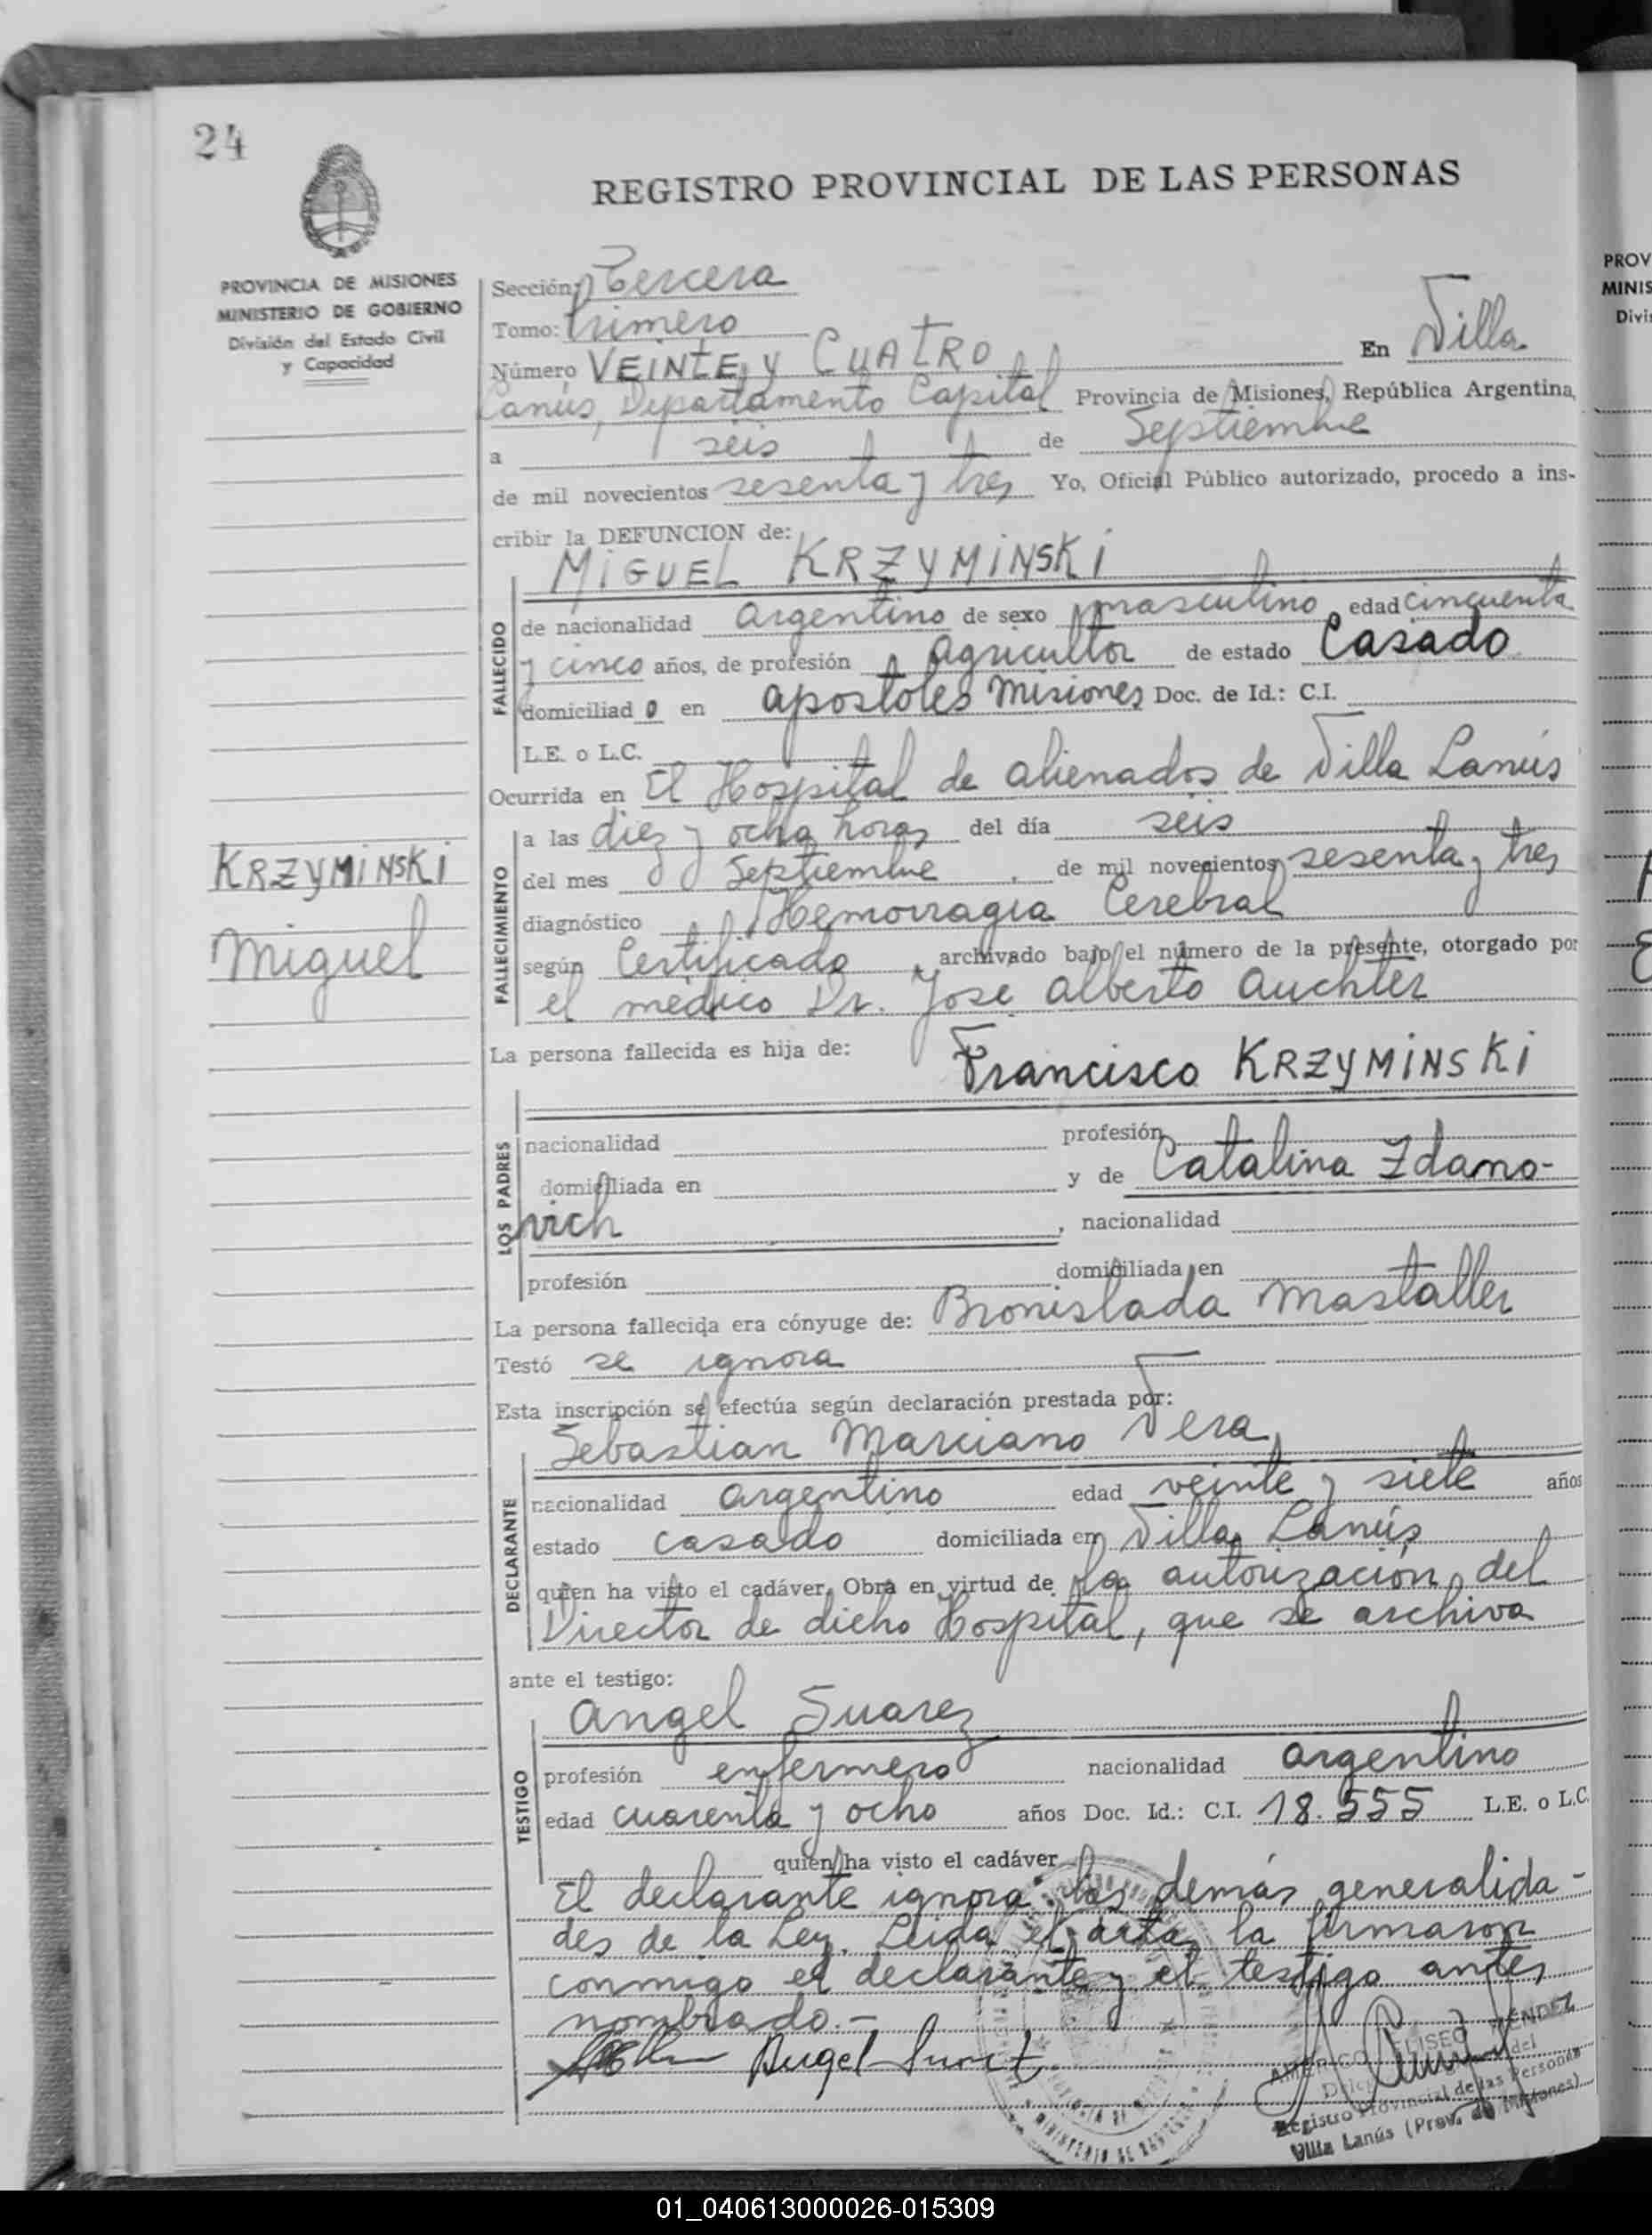 24
REGISTRO PROVINCIAL DE LAS PERSONAS
PROVINCIA DE MISIONES
MINISTERIO DE GOBIERNO
División del Estado Civil
y Capacidad
Sección: Tercera
Tomo: Primero
Número VEINTE y CUATRO En Villa
Lanús, Departamento Capital Provincia de Misiones, República Argentina,
a seis de Septiembre
de mil novecientos sesenta y tres Yo, Oficial Público autorizado, procedo a ins-
cribir la DEFUNCION de:
MIGUEL KRZYMINSKI
FALLECIDO
de nacionalidad argentino de sexo masculino edad cincuenta
y cinco años, de profesión agricultor de estado Casado
domiciliad o en apostoles Misiones Doc. de Id.: C.I.
L.E. o L.C.
Ocurrida en El Hospital de alienados de Villa Lanús
FALLECIMIENTO
a las diez y ocho horas del día seis
del mes Septiembre de mil novecientos sesenta y tres
diagnóstico Hemorragia Cerebral
según Certificado, archivado bajo el número de la presente, otorgado por
el médico Dr. Jose alberto auchter
KRZYMINSKI
Miguel
La persona fallecida es hija de:
Francisco KRZYMINSKI
LOS PADRES
nacionalidad profesión
domiciliada en y de Catalina Zdano-
vich, nacionalidad
profesión domiciliada en
La persona fallecida era cónyuge de: Bronislada Mastaller
Testó se ignora
Esta inscripción se efectúa según declaración prestada por:
Sebastian Marciano Vera
DECLARANTE
nacionalidad argentino edad veinte y siete años
estado casado domiciliada en Villa Lanús
quien ha visto el cadáver. Obra en virtud de la autorización del
Director de dicho Hospital, que se archiva
ante el testigo:
Angel Suarez
TESTIGO
profesión enfermero nacionalidad argentino
edad cuarenta y ocho años Doc. Id.: C.I. 18.555 L.E. o L.C.
quien ha visto el cadáver
El declarante ignora las demás generalida-
des de la Ley. Leida el acta, la firmaron
conmigo el declarante y el testigo antes
nombrado.-
Angel Suarez
AMERICO ELISEO MÉNDEZ
Registro Provincial de las Personas
Villa Lanús (Prov. de Misiones)
PROV
MINIS
Divis
01_040613000026-015309